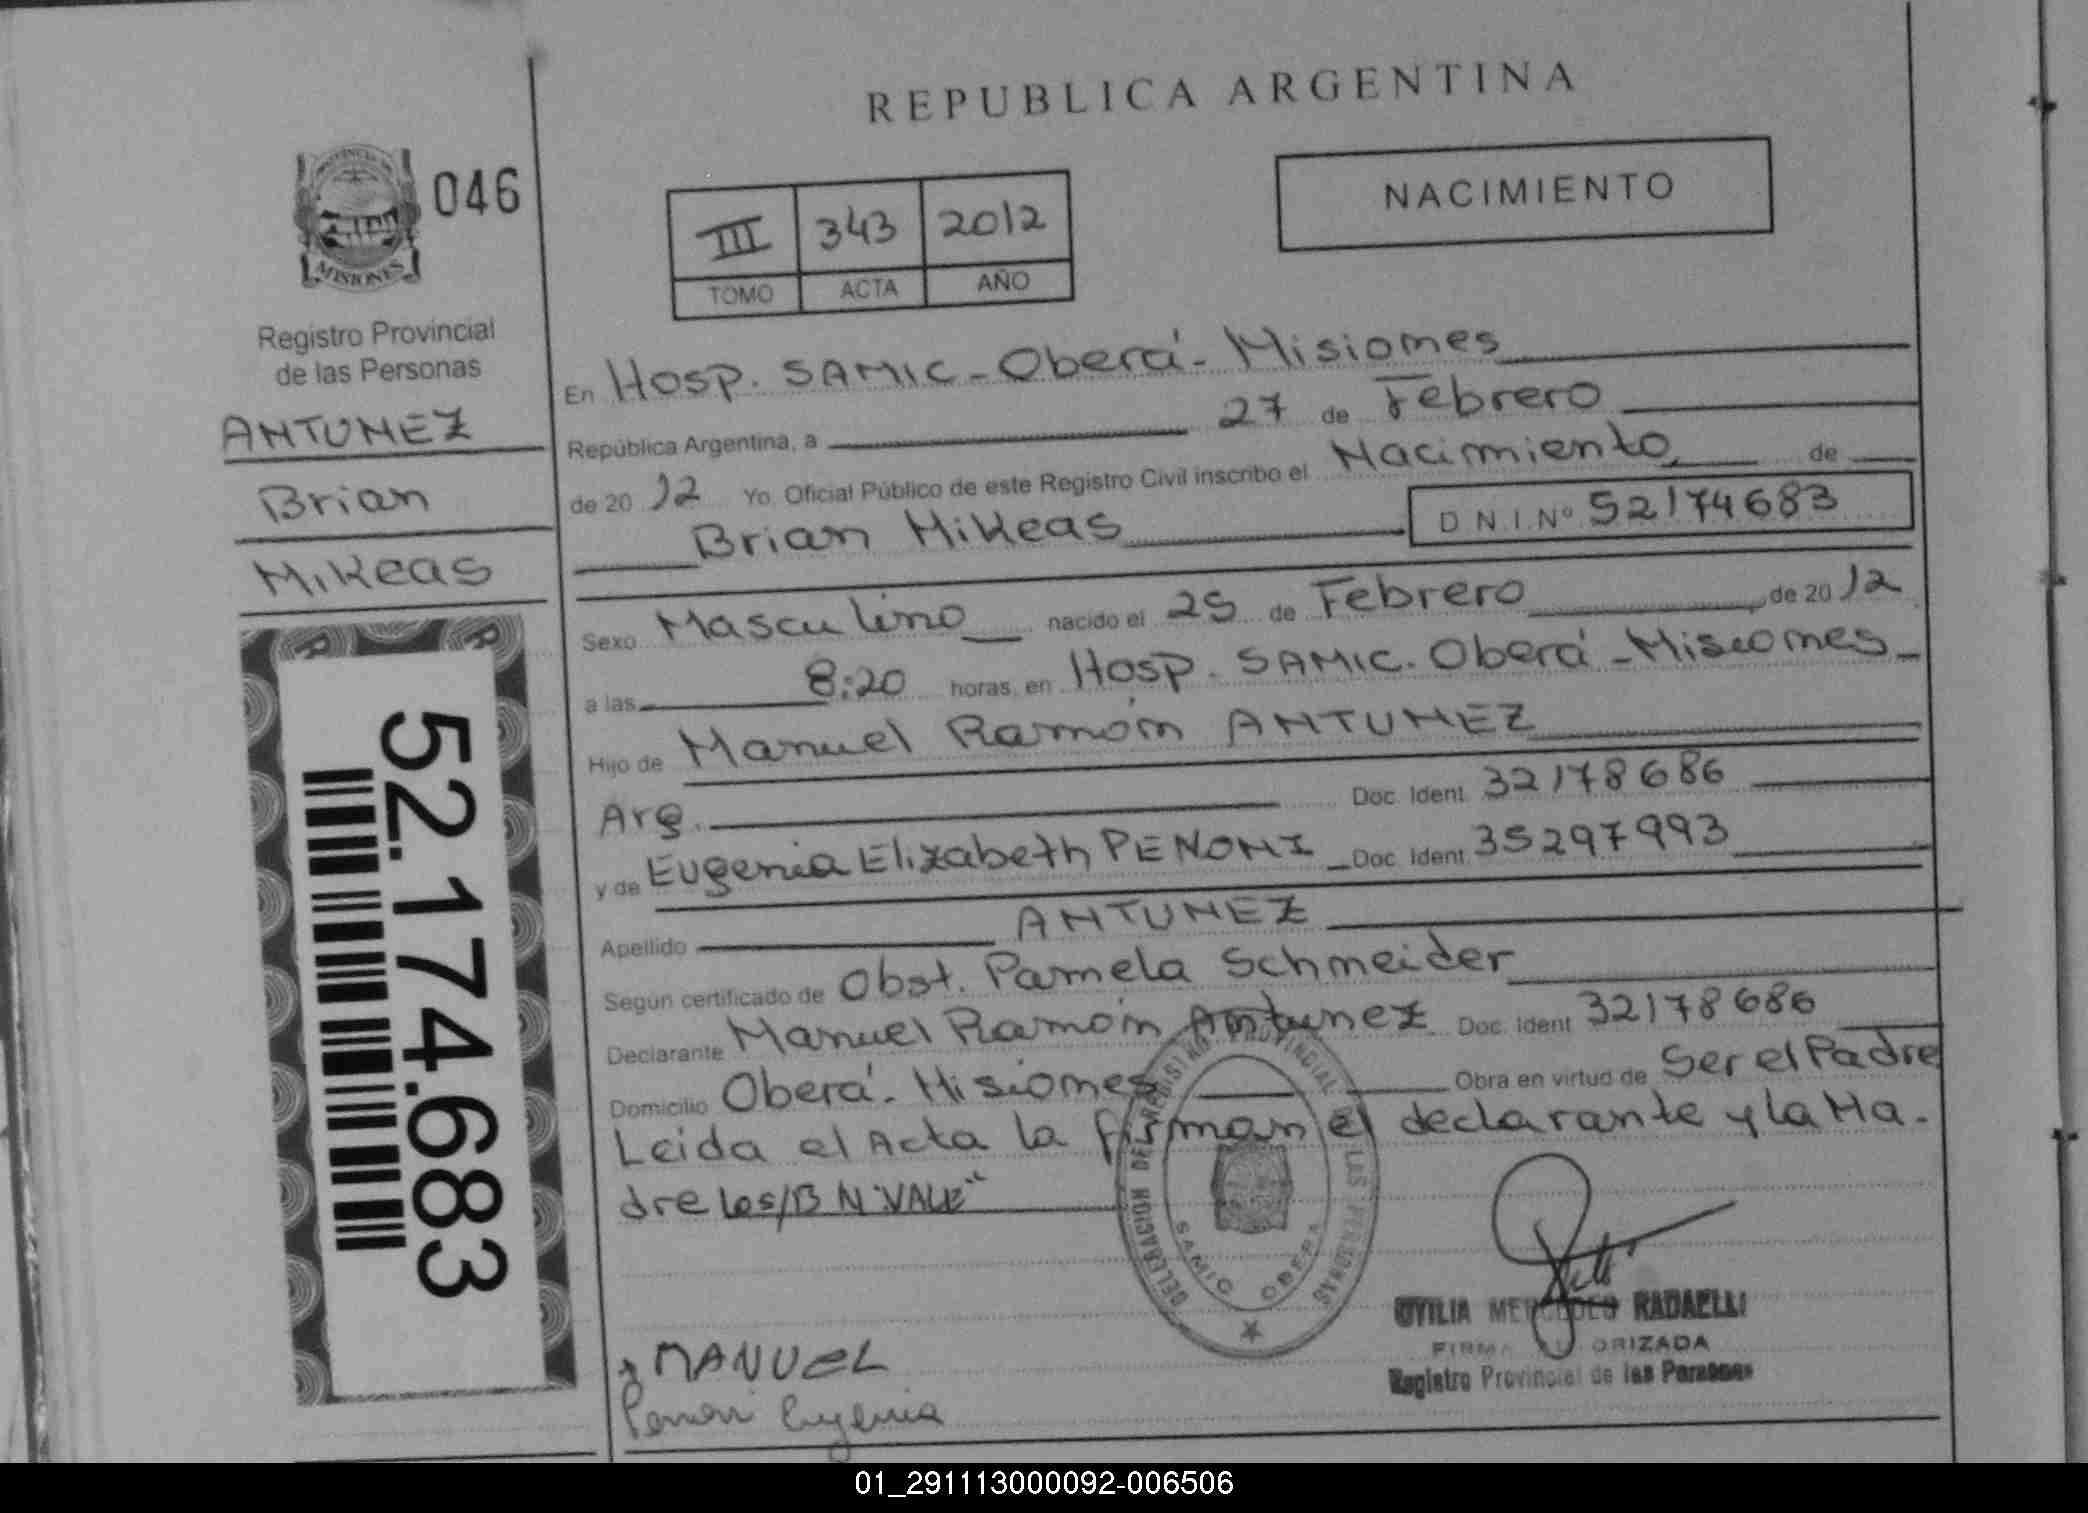 REPUBLICA ARGENTINA
PROVINCIA DE
MISIONES
046
Registro Provincial
de las Personas
ANTUNEZ
Brian
Mikeas
52.174.683
III 343 2012
TOMO ACTA AÑO
NACIMIENTO
En Hosp. SAMIC - Oberá - Misiones
República Argentina, a 27 de Febrero
de 2012 Yo, Oficial Público de este Registro Civil inscribo el Nacimiento de
Brian Mikeas D.N.I. Nº 52174683
Sexo Masculino nacido el 25 de Febrero de 2012
a las 8:20 horas, en Hosp. SAMIC. Oberá - Misiones
Hijo de Manuel Ramón ANTUNEZ
Arg. Doc. Ident. 32178686
y de Eugenia Elizabeth PENONI Doc. Ident. 35297993
Apellido ANTUNEZ
Según certificado de Obst. Pamela Schneider
Declarante Manuel Ramón Antunez Doc. Ident. 32178686
Domicilio Oberá - Misiones Obra en virtud de Ser el Padre
Leida el Acta la firman el declarante y la Ma-
dre Les/B N "VALE"
DELEGACION DE REGISTRO PROVINCIAL DE LAS PERSONAS
SAMIC OBERA
MANUEL
Penoni Eugenia
OTILIA MERCEDES RADAELLI
FIRMA AUTORIZADA
Registro Provincial de las Personas
01_291113000092-006506